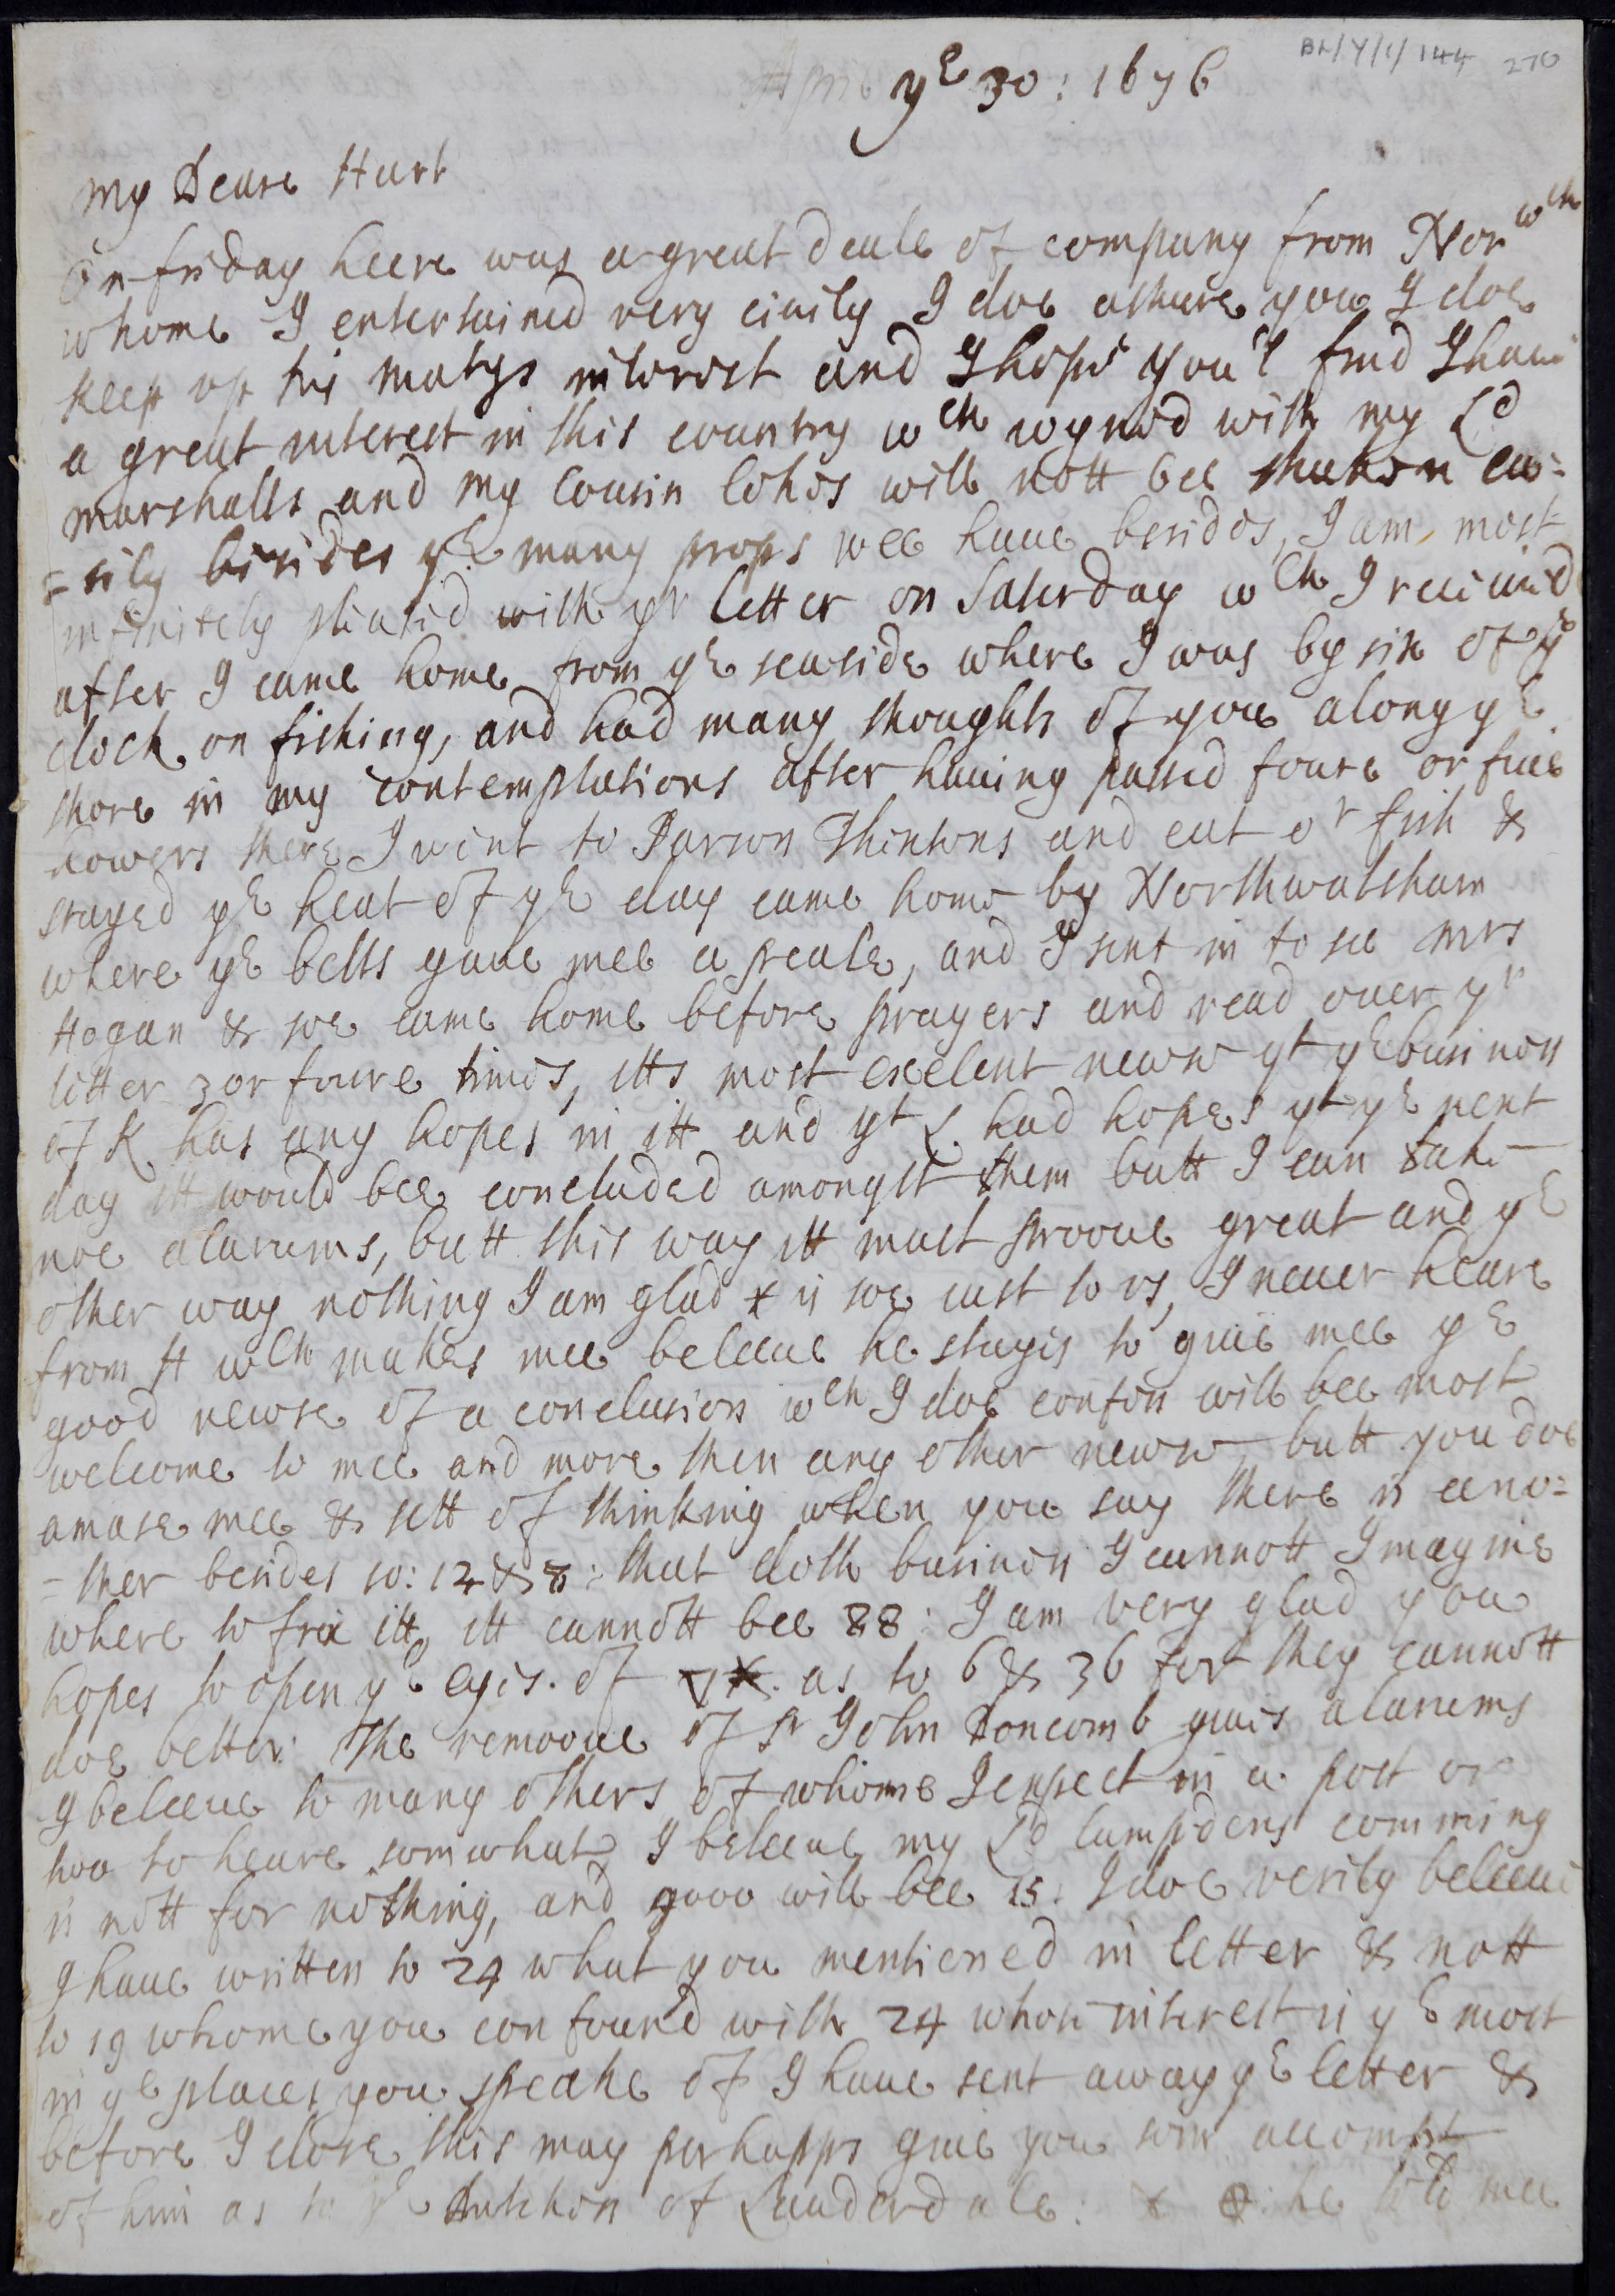 BL/Y/1/144 270
Apr: yᵉ 30: 1676
My Deare Hart
On friday heere was a great deale of company from Norwᶜʰ
whome I entertained very civily I doe ashure you I doe
keep up his Matys interest and I hope you'l find I have
a great interest in this country wᶜʰ joyned with my Lᵈ
marshalls and my Cousin Cokes will nott bee shaken ea=
=sily besides yᵉ many props wee have besides, I am most
infinitely pleased with yʳ letter on Saterday wᶜʰ I received
after I came home from yᵉ seaside where I was by six of yᵉ
clock on fishing, and had many thoughts of you along yᵉ
shore in my contemplations after having passed foure or five
howers there I went to Parson Thintons and eat oʳ fish &
stayed yᵉ heat of yᵉ day came home by Northwalsham
where yᵉ bells gave mee a peale, and I sent in to see Mrs
Hogan & soe came home before prayers and read over yʳ
letter 3 or foure times, itts most exelent news yᵗ yᵉ business
of K has any hopes in itt and yᵗ L. had hopes yᵗ yᵉ next
day itt would bee concluded amongst them butt I can take
noe alarums, butt this way itt must proove great and yᵉ
other way nothing I am glad x is soe just to us, I never heare
from H wᶜʰ makes mee beleeve he stayes to give mee yᵉ
good newse of a conclusion wᶜʰ I doe confess will bee most
welcome to mee and more then any other news butt you doe
amase mee & sett of thinking when you say there is ano=
=ther besides 10: 12 & 8: that doth business I cannott Imagine
where to fix itt, itt cannott bee 88: I am very glad you
hopes to open yᵉ eyes of as to 6 & 36 for they cannott
doe better: The remoove of Sʳ John Doncomb gives alarums
I beleeve to many others of whome I expect in a post or
too to heare somwhat I beleeve my Lᵈ Campdens comming
is nott for nothing, and good will bee 15: I doe verily beleeve
I have written to 24 what you mentioned in letter & nott
to 19 whome you confound with 24 whose interest is yᵉ most
in yᵉ places you speake of I have sent away yᵉ letter &
before I close this may perhapps give you som accompt
of him as to yᵉ Dutchess of Lauderdale: x he told mee